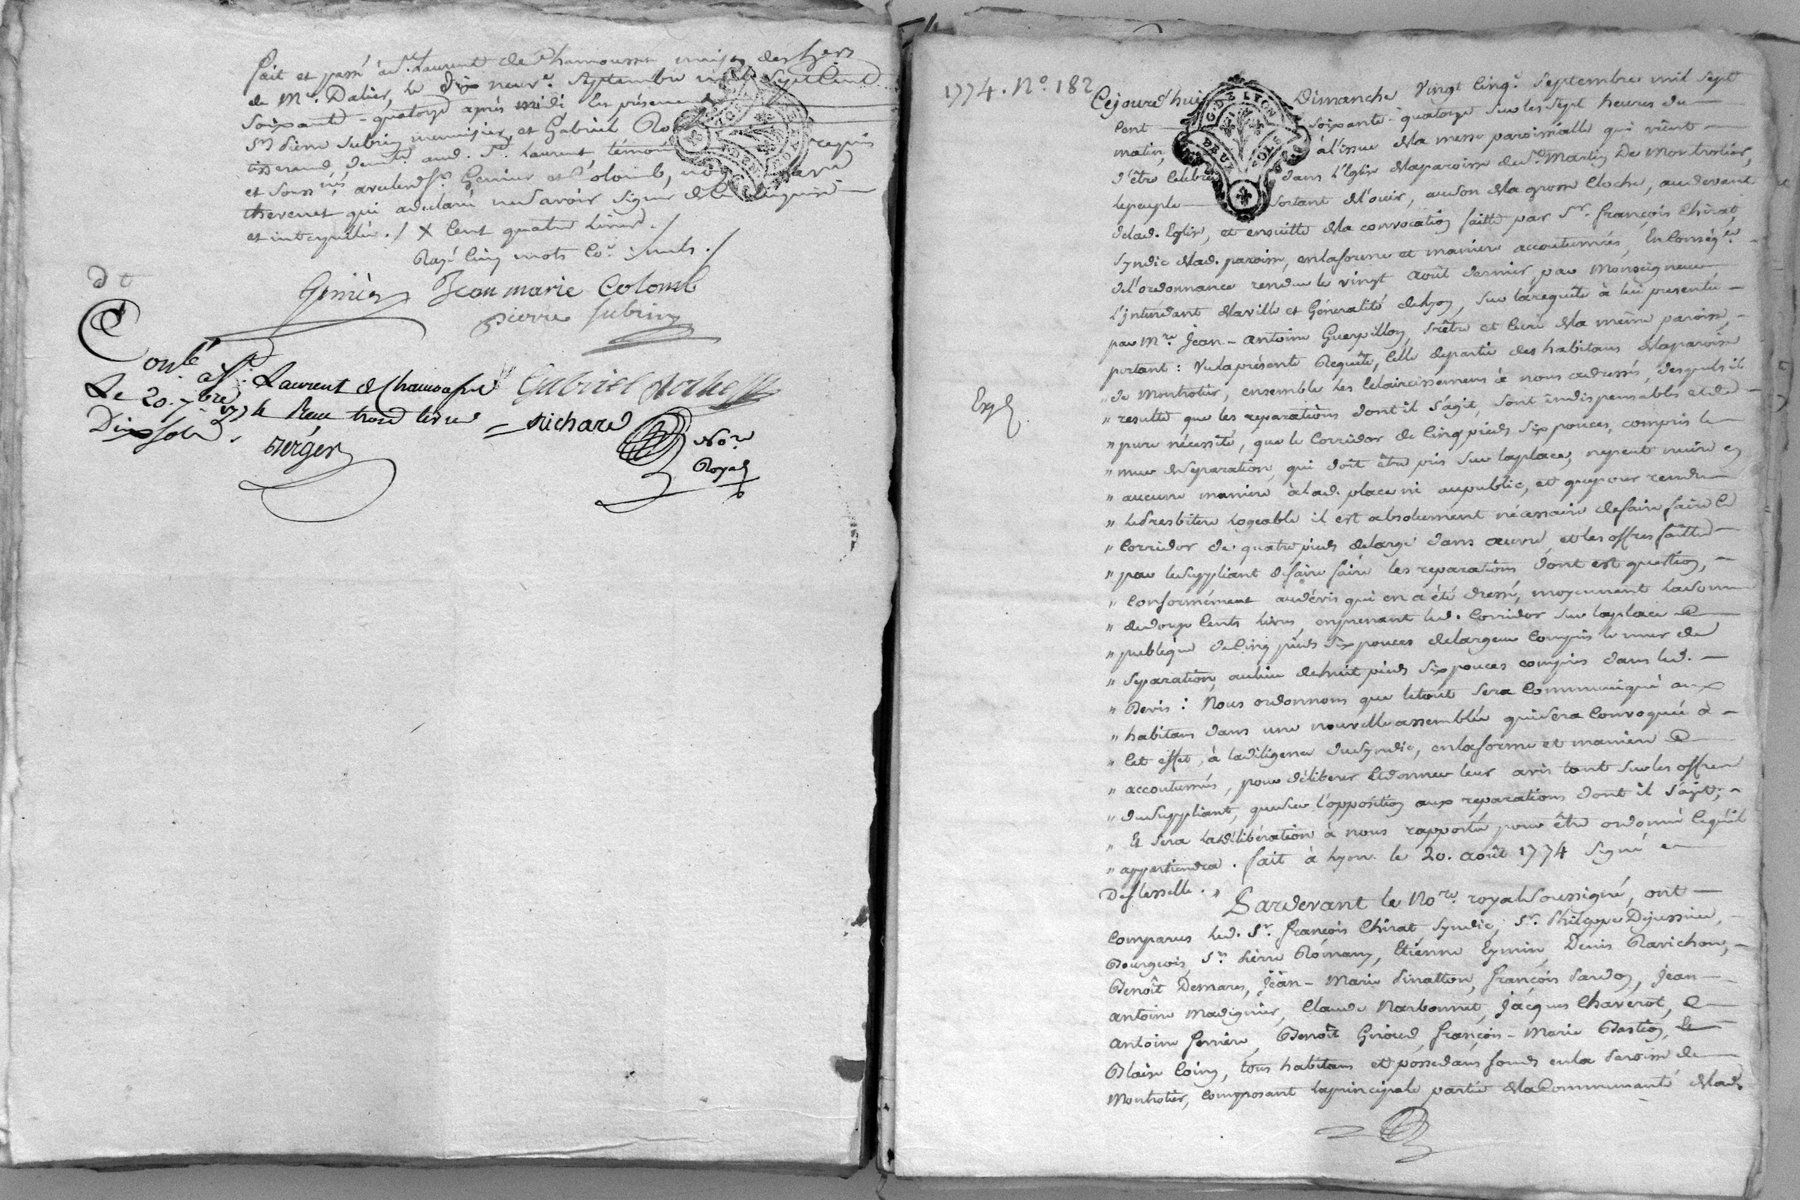 fait et passé à St. Laurent de Chamousset maison des hers
de Me. Dalier, le dix neuf septembre mil sept cent
soixante-quatorze après midi les présence
Sr. pierre Subrin meunier, et Gabriel Ro
tisserand, demt. aud. St. Laurent, témoins requis
et soussés. avec led. Sr. Génier et Colomb,
thevenet qui a déclaré ne savoir signer de ce enquis
et interpellé ./ X cent quatre livres ./
Rayé cinq mots co: nuls ./
Génier Jean marie Colomb
pierre subrin
Conlé à St. Laurent de Chamousset Gabriel Roche
Le 20. 7bre 1774 Reçu livre Richard
Dix sols. No.re
Berger Royal
1774. No. 182
Cejourd'hui Dimanche Vingt cinq Septembre mil sept
cent soixante-quatorze sur les sept heures du
matin, à l'issue de la messe paroissialle qui vient
d'être célébrée dans l'Eglise de la paroisse de St. Martin De Montrotier,
le peuple sortant de l'ouir, au son de la grosse cloche, au devant
de lad. Eglise, et ensuitte de la convocation faitte par Sr. françois Chirat,
syndic de lad. paroisse, en la forme et maniere accoutumées, En conséqce.
de l'ordonnance rendue le vingt août dernier, par Monseigneur
L'intendant de la ville et Généralité de Lyon, sur la requête à lui présentée
par Mre. Jean-antoine Guerpillon, Prêtre et curé de la même paroisse,
portant : Vu la présente Requête, celle de partie des habitans de la paroisse
" de Montrotier, ensemble les Eclaircissemens à nous adressés, desquels il
Expé.
" resulte que les reparations dont il s'agit, sont indispensables et de
" pure nécessité, que le corridor de cinq pieds six pouces, compris le
" mur de séparation, qui doit être pris sur la place, ne peut nuire en
" aucune maniere à lad. place ni au public, et que pour rendre
" le Presbitere logeable il est absolument nécessaire de faire faire le
" corridor de quatre pieds de large dans œuvre, et les offres faittes
" par le suppliant de faire faire les reparations dont est question,
" conformément au dévis qui en a été dressé, moyennant la somme
" de douze cents livres, en prenant led. corridor sur la place
" publique de cinq pieds six pouces de largeur compris le mur de
" séparation, au lieu de huit pieds six pouces compris dans led.
" Devis : Nous ordonnons que le tout sera communiqué aux
" habitans dans une nouvelle assemblée qui sera convoquée à
" cet effet, à la diligence du syndic, en la forme et maniere
" accoutumées, pour déliberer et donner leur avis tant sur les offres
" du suppliant, que sur l'opposition aux reparations dont il s'agit ;
" Et sera la délibération à nous rapportée pour être ordonné ce qu'il
" appartiendra . fait à Lyon le 20. août 1774 signé
De flesselle . "
Pardevant le No.re royal soussigné, ont
comparus led. Sr. françois Chirat, syndic, Sr. Philippe Dejussieu,
Bourgeois, Sr. pierre Romany, Etienne Eymin, Denis Ravichon,
Benoît Demares, Jean-Marie Pinatton, françois Pardon, Jean
antoine Madignier, Claude Narbonnet, Jacques Chaverot,
antoine ferriere, Benoît Giroud, françois-Marie Bastion, &
Blaise Coing, tous habitans et possedans fonds en la Paroisse de
Montrotier, composant la principale partie de la Communauté de lad.